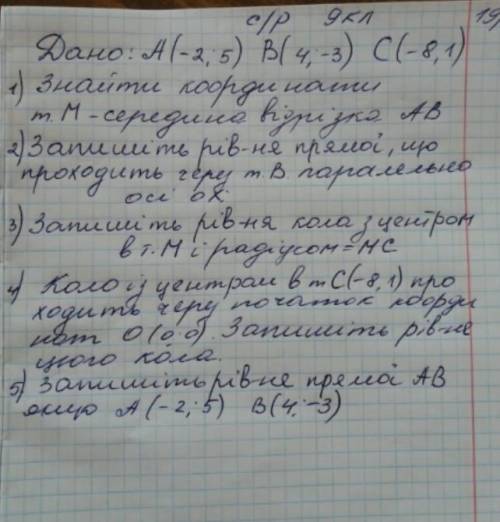 с/р 9кл 19
Дано: A(-2; 5) B(4; -3) C(-8, 1)
1) Знайти координати
т. М - середина відрізка AB
2) Запишіть рів-не прямої, що
проходить черу т. В паралельно
осі оХ.
3) Запишіть рів-ня кола з центром
в т. М і радіусом = МС
4) Коло із центром в т С(-8, 1) про
ходить черу початок коорди
нат О(0;0). Запишіть рів-не
цього кола.
5) Запишіть рів-не прямої AB
якщо A(-2; 5) B(4; -3)